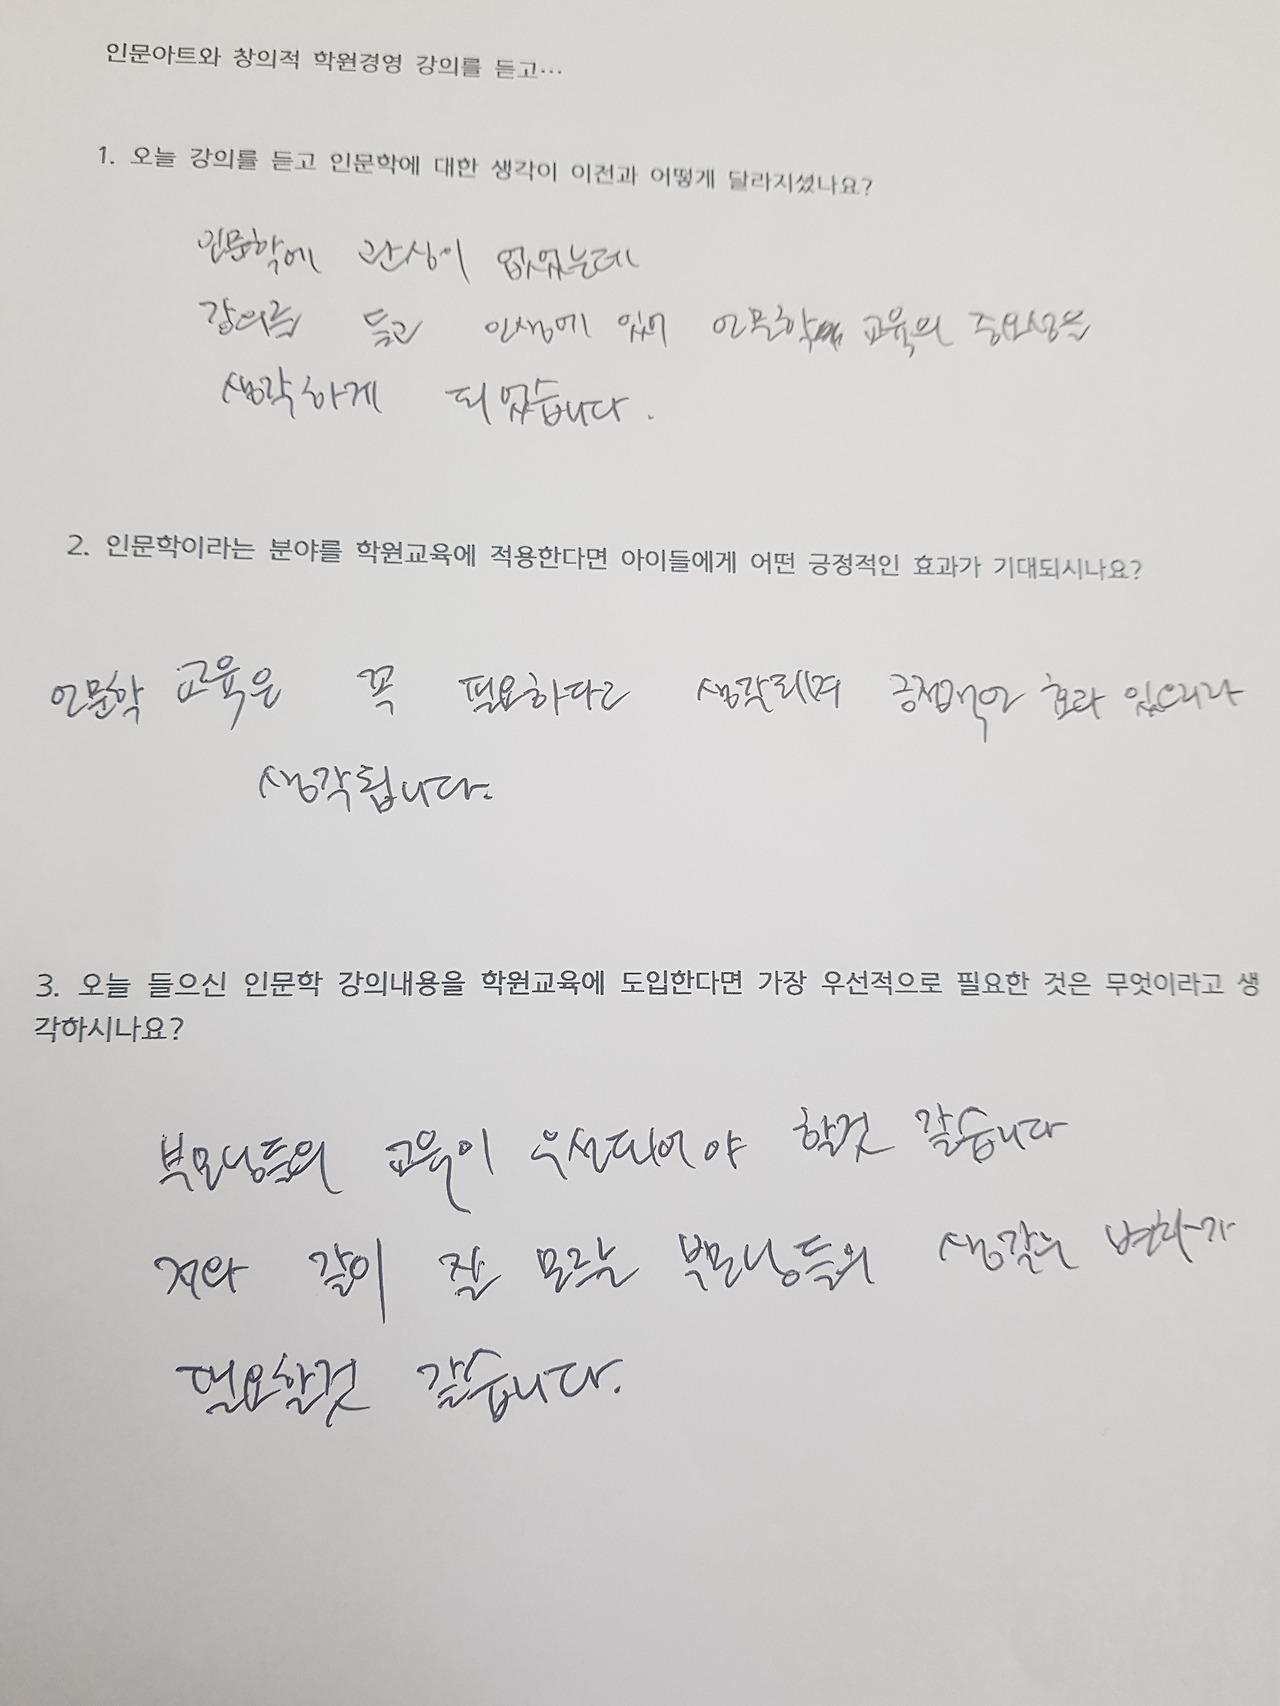 인문아트와 창의적 학원경영 강의를 듣고…
1. 오늘 강의를 듣고 인문학에 대한 생각이 이전과 어떻게 달라지셨나요?
인문학에 관심이 없었는데
강의를 듣고 인생에 있어 인문학 교육의 중요성을
생각하게 되었습니다.
2. 인문학이라는 분야를 학원교육에 적용한다면 아이들에게 어떤 긍정적인 효과가 기대되시나요?
인문학 교육은 꼭 필요하다고 생각되며 긍정적인 효과 있으리라
생각됩니다.
3. 오늘 들으신 인문학 강의내용을 학원교육에 도입한다면 가장 우선적으로 필요한 것은 무엇이라고 생
각하시나요?
부모님들의 교육이 우선되어야 할것 같습니다
저와 같이 잘 모르는 부모님들의 생각의 변화가
필요할것 같습니다.